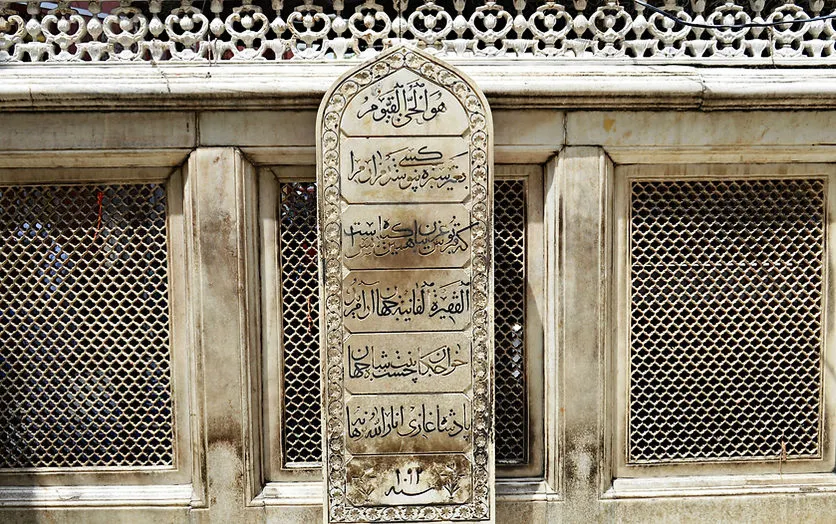 هو الحی القیوم
بغیر سبزه نپوشد کسی مزار مرا
که قبرپوش غریبان همین گیاه بس است
الفقیرة الفانیة جهان آرا مرید
خواجگان چشت بنت شاهجهان
پادشاه غازی انار الله برهانه
سنه ۱۰۹۲